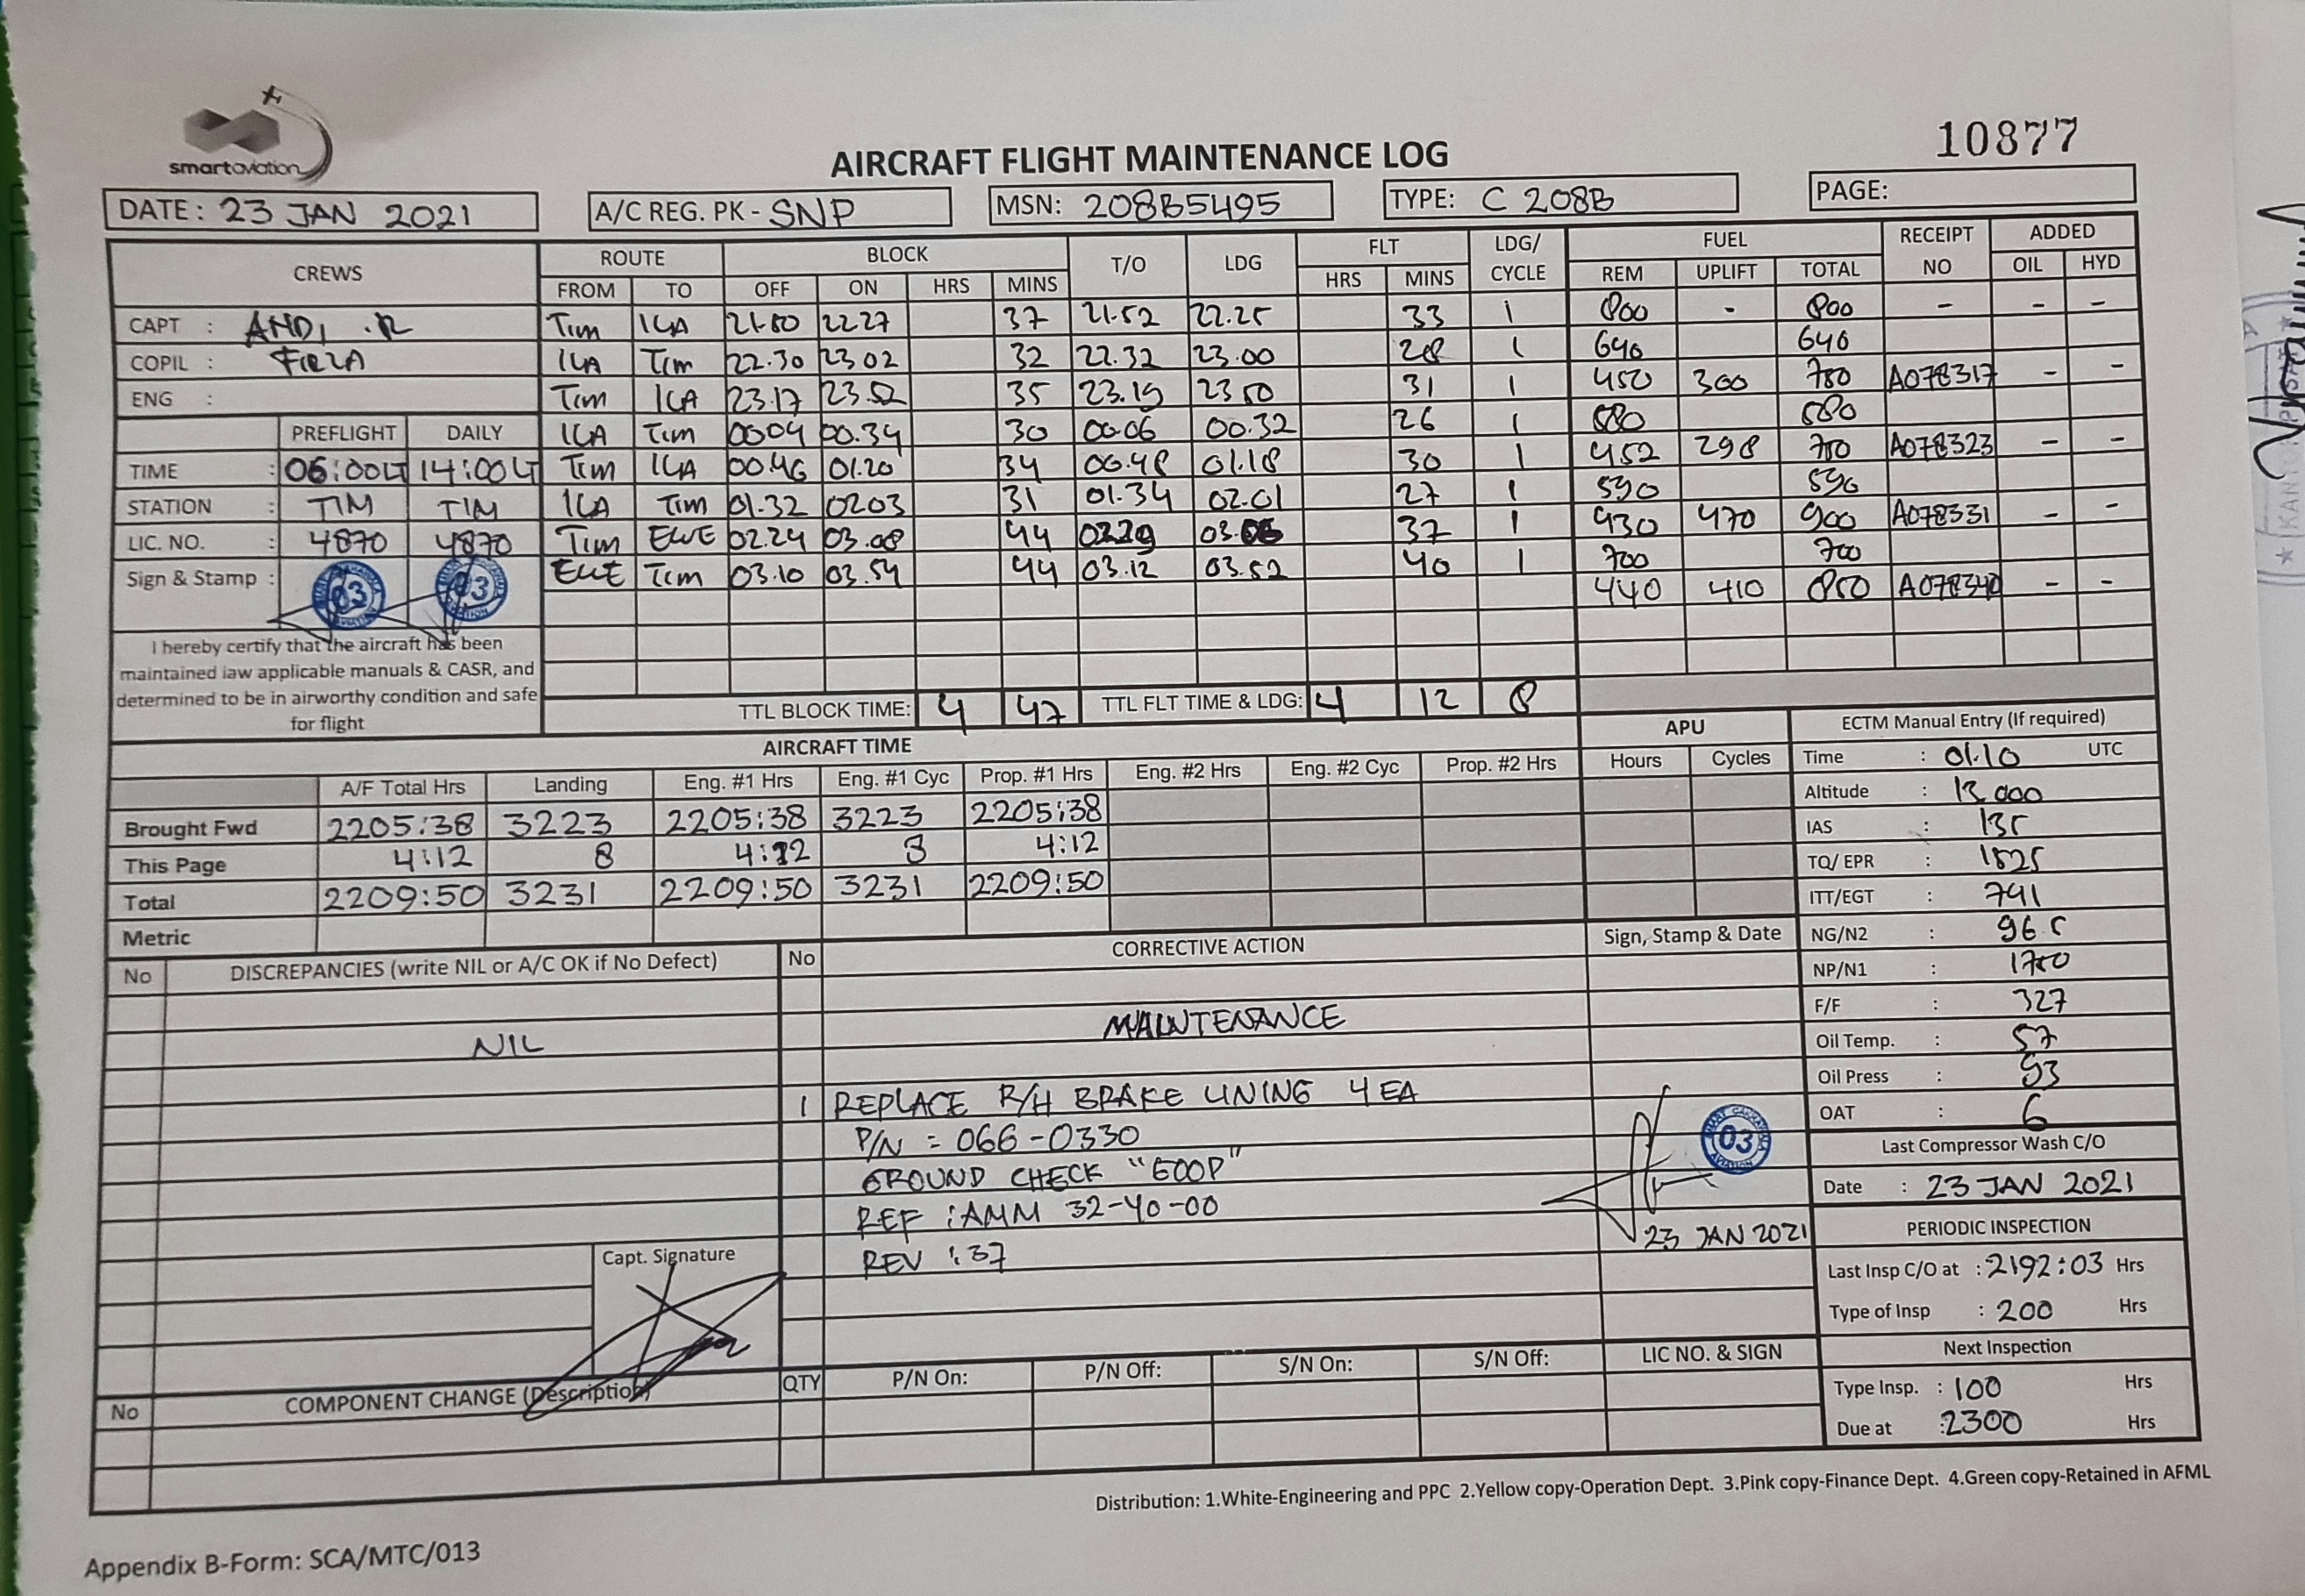 10877
smartaviation
AIRCRAFT FLIGHT MAINTENANCE LOG
DATE: 23 JAN 2021 A/C REG. PK - SNP MSN: 208B5495 TYPE: C 208B PAGE:
CREWS ROUTE BLOCK T/O LDG FLT LDG/ CYCLE FUEL RECEIPT NO ADDED
FROM TO OFF ON HRS MINS HRS MINS REM UPLIFT TOTAL OIL HYD
CAPT : ANDI .R Tim ILA 21.50 22 27 37 21.52 22.25 33 1 800 - 800 - - -
COPIL : FIRZA ILA Tim 22.30 23 02 32 22.32 23.00 28 1 640 640
ENG : Tim ILA 23.17 23.52 35 23.19 23 50 31 1 450 300 750 A078317 - -
PREFLIGHT DAILY ILA Tim 0004 00.34 30 00.06 00.32 26 1 580 580
TIME : 06:00LT 14:00LT Tim ILA 00.46 01.20 34 00.48 01.18 30 1 452 298 750 A078323 - -
STATION : TIM TIM ILA Tim 01.32 0203 31 01.34 02.01 27 1 590 590
LIC. NO. : 4870 4870 Tim EWE 02.24 03.08 44 0229 03.06 37 1 430 470 900 A078331 - -
Sign & Stamp : 03 03 EWE Tim 03.10 03.54 44 03.12 03.52 40 1 700 700
440 410 850 A078340 - -
I hereby certify that the aircraft has been
maintained iaw applicable manuals & CASR, and
determined to be in airworthy condition and safe
for flight
TTL BLOCK TIME: 4 47 TTL FLT TIME & LDG: 4 12 8
AIRCRAFT TIME APU ECTM Manual Entry (If required)
A/F Total Hrs Landing Eng. #1 Hrs Eng. #1 Cyc Prop. #1 Hrs Eng. #2 Hrs Eng. #2 Cyc Prop. #2 Hrs Hours Cycles Time : 01.10 UTC
Brought Fwd 2205:38 3223 2205:38 3223 2205:38 Altitude : 13.000
This Page 4:12 8 4:12 8 4:12 IAS : 135
Total 2209:50 3231 2209:50 3231 2209:50 TQ/ EPR : 1525
Metric ITT/EGT : 741
No DISCREPANCIES (write NIL or A/C OK if No Defect) No CORRECTIVE ACTION Sign, Stamp & Date NG/N2 : 96.5
NP/N1 : 1750
NIL MAINTENANCE F/F : 327
Oil Temp. : 57
Oil Press : 93
1 REPLACE R/H BRAKE LINING 4 EA OAT : 6
P/N = 066-0330 03 Last Compressor Wash C/O
GROUND CHECK "GOOD" Date : 23 JAN 2021
REF : AMM 32-40-00 23 JAN 2021 PERIODIC INSPECTION
REV : 37
Capt. Signature Last Insp C/O at : 2192:03 Hrs
Type of Insp : 200 Hrs
Next Inspection
No COMPONENT CHANGE (Description) QTY P/N On: P/N Off: S/N On: S/N Off: LIC NO. & SIGN Type Insp. : 100 Hrs
Due at :2300 Hrs
Distribution: 1.White-Engineering and PPC 2.Yellow copy-Operation Dept. 3.Pink copy-Finance Dept. 4.Green copy-Retained in AFML
Appendix B-Form: SCA/MTC/013